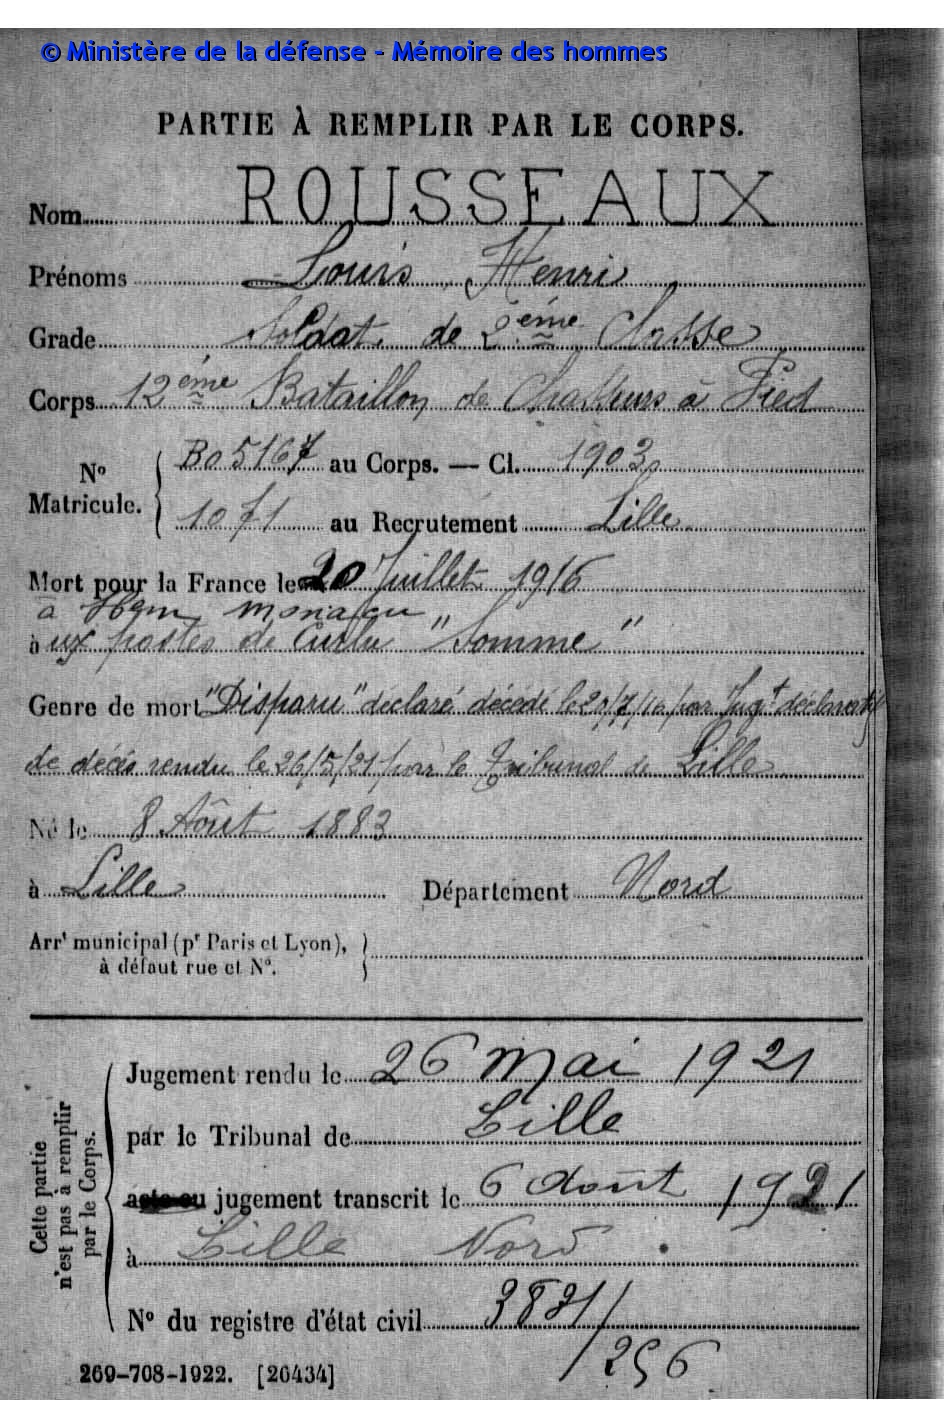 © Ministère de la défense - Mémoire des hommes
PARTIE À REMPLIR PAR LE CORPS.
Nom ROUSSEAUX
Prénoms Louis Henri
Grade Soldat de 2ème Classe
Corps 12ème Bataillon de Chasseurs à Pied
No Matricule. { B05167 au Corps. — Cl. 1903
1071 au Recrutement Lille
Mort pour la France le 20 Juillet 1916
à Hem monacu
à ux postes de Curlu "Somme"
Genre de mort "Disparu" déclaré décédé le 20/7/16 par Jugt déclaratif
de décès rendu le 26/5/21 par le Tribunal de Lille
Né le 8 Août 1883
à Lille Département Nord
Arrt municipal (pr Paris et Lyon),
à défaut rue et No.
Cette partie
n'est pas à remplir
par le Corps.
Jugement rendu le 26 Mai 1921
par le Tribunal de Lille
acte ou jugement transcrit le 6 Août 1921
à Lille Nord
No du registre d'état civil 3831/
/256
269-708-1922. [26434]